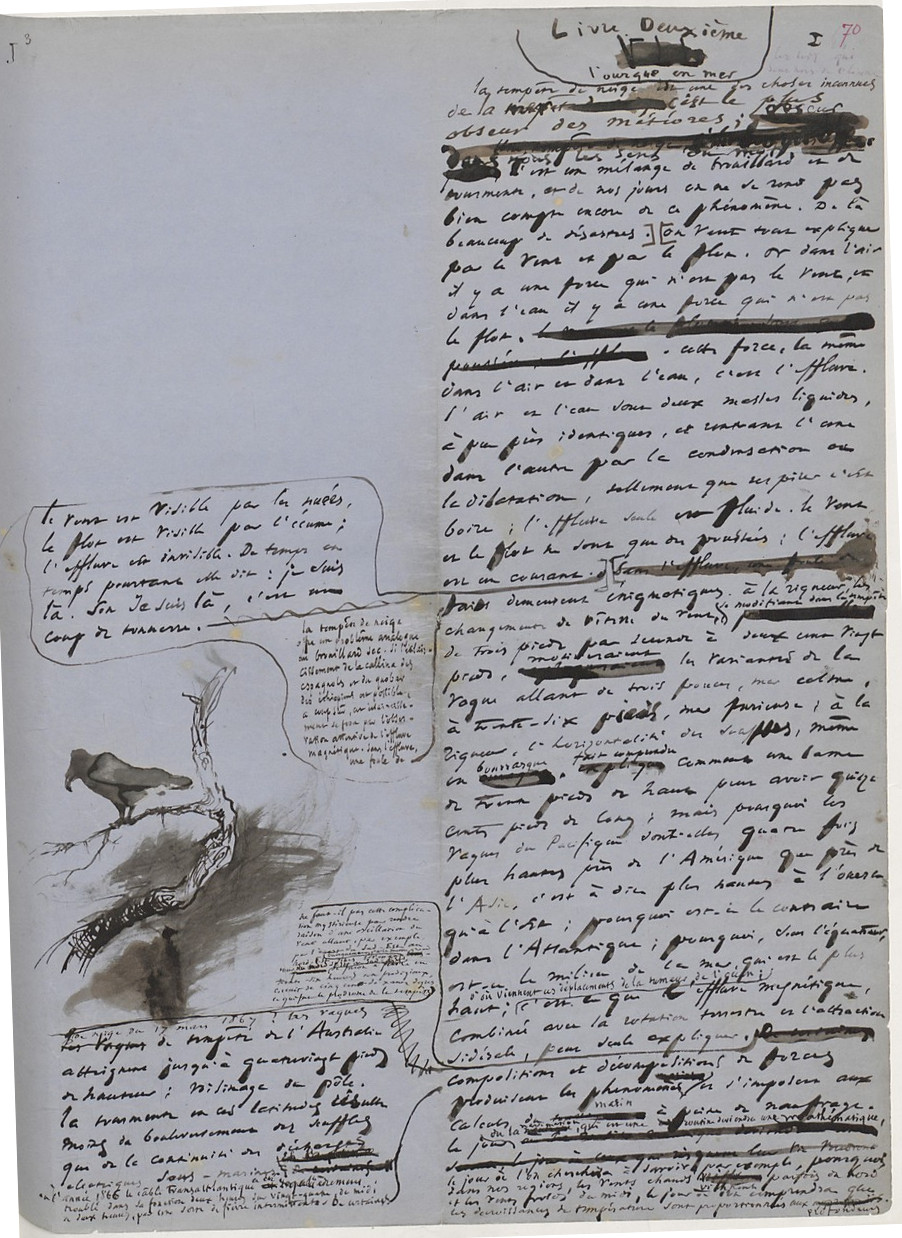 Livre Deuxième
I
70
J 3
l'ourque en mer
la tempête de neige est une des choses inconnues
de la c'est le plus
obscur des météores;
C'est un mélange de brouillard et de
tourmente, et de nos jours on ne se rend pas
bien compte encore de ce phénomène. De là
beaucoup de désastres. On veut tout expliquer
par le vent et par le flot. Or dans l'air
il y a une force qui n'est pas le vent, et
dans l'eau il y a une force qui n'est pas
le flot.
cette force, la même
dans l'air et dans l'eau, c'est l'effluve.
l'air et l'eau sont deux masses liquides,
à peu près identiques, et rentrant l'une
dans l'autre par la condensation ou
la dilatation, tellement que respirer c'est
boire; l'effluve seule est fluide. le vent
et le flot ne sont que des poussées; l'effluve
est un courant.
le vent est visible par les nuées,
le flot est visible par l'écume;
l'effluve est invisible. De temps en
temps pourtant elle dit: je suis
là. Son Je suis là, c'est un
coup de tonnerre.
la tempête de neige
offre un problème analogue
au brouillard sec. Si l'éclair-
cissement de la callina des
espagnols et du quobar
des éthiopiens est possible,
à coup sûr, cet éclaircisse-
ment se fera par l'obser-
vation attentive de l'effluve
magnétique. sans l'effluve,
une foule de
faits demeurent énigmatiques. à la rigueur, les
changements de vitesse du vent, se modifiant dans la tempête
de trois pieds par seconde à deux cent vingt
pieds, motiveraient les variantes de la
vague allant de trois pouces, mer calme,
à trente-six pieds, mer furieuse; à la
rigueur, l'horizontalité des souffles, même
en bourrasque, fait comprendre comment une lame
de trente pieds de haut peut avoir quinze
cents pieds de long; mais pourquoi les
vagues du Pacifique sont-elles quatre fois
plus hautes près de l'Amérique que près de
l'Asie, c'est à dire plus hautes à l'ouest
qu'à l'Est; pourquoi est-ce le contraire
dans l'Atlantique; pourquoi, sous l'équateur,
est-ce le milieu de la mer qui est le plus
haut; d'où viennent ces déplacements de la tumeur de l'océan?
c'est ce que l'effluve magnétique,
combinée avec la rotation terrestre et l'attraction
sidérale, peut seule expliquer.
ne faut-il pas cette complica-
tion mystérieuse pour rendre
raison d'une oscillation du
vent allant, par exemple
de neige du 17 mars 1867?
les vagues
de tempête de l'Australie
atteignent jusqu'à quatrevingt pieds
de hauteur; voisinage du pôle.
la tourmente en ces latitudes résulte
moins du bouleversement des souffles
que de la continuité des décharges
électriques sous-marines;
en l'année 1866 le câble transatlantique a été
troublé dans sa fonction deux heures sur vingtquatre, de midi
à deux heures, par une sorte de fièvre intermittente. De certaines
compositions et décompositions de forces
produisent les phénomènes, et s'imposent aux
calculs du marin à peine de naufrage.
le jour où la navigation qui est une routine deviendra une mathématique,
le jour où l'on cherchera à savoir, par exemple, pourquoi
dans nos régions les vents chauds viennent parfois du nord
et les vents froids du midi, le jour où l'on comprendra que
les décroissances de température sont proportionnées aux
profondeurs